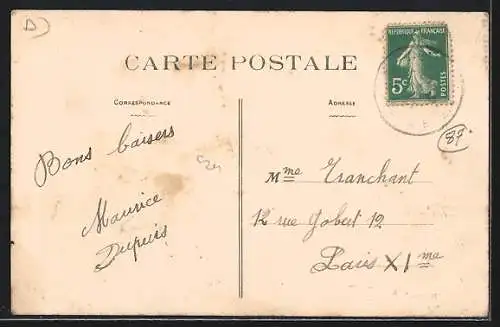 D
CARTE POSTALE
RÉPUBLIQUE FRANÇAISE
5c
POSTES
CORRESPONDANCE
ADRESSE
87
Bons baisers
Maurice
Dupuis
Mme Tranchant
12 rue Gobert 12
Paris XIme